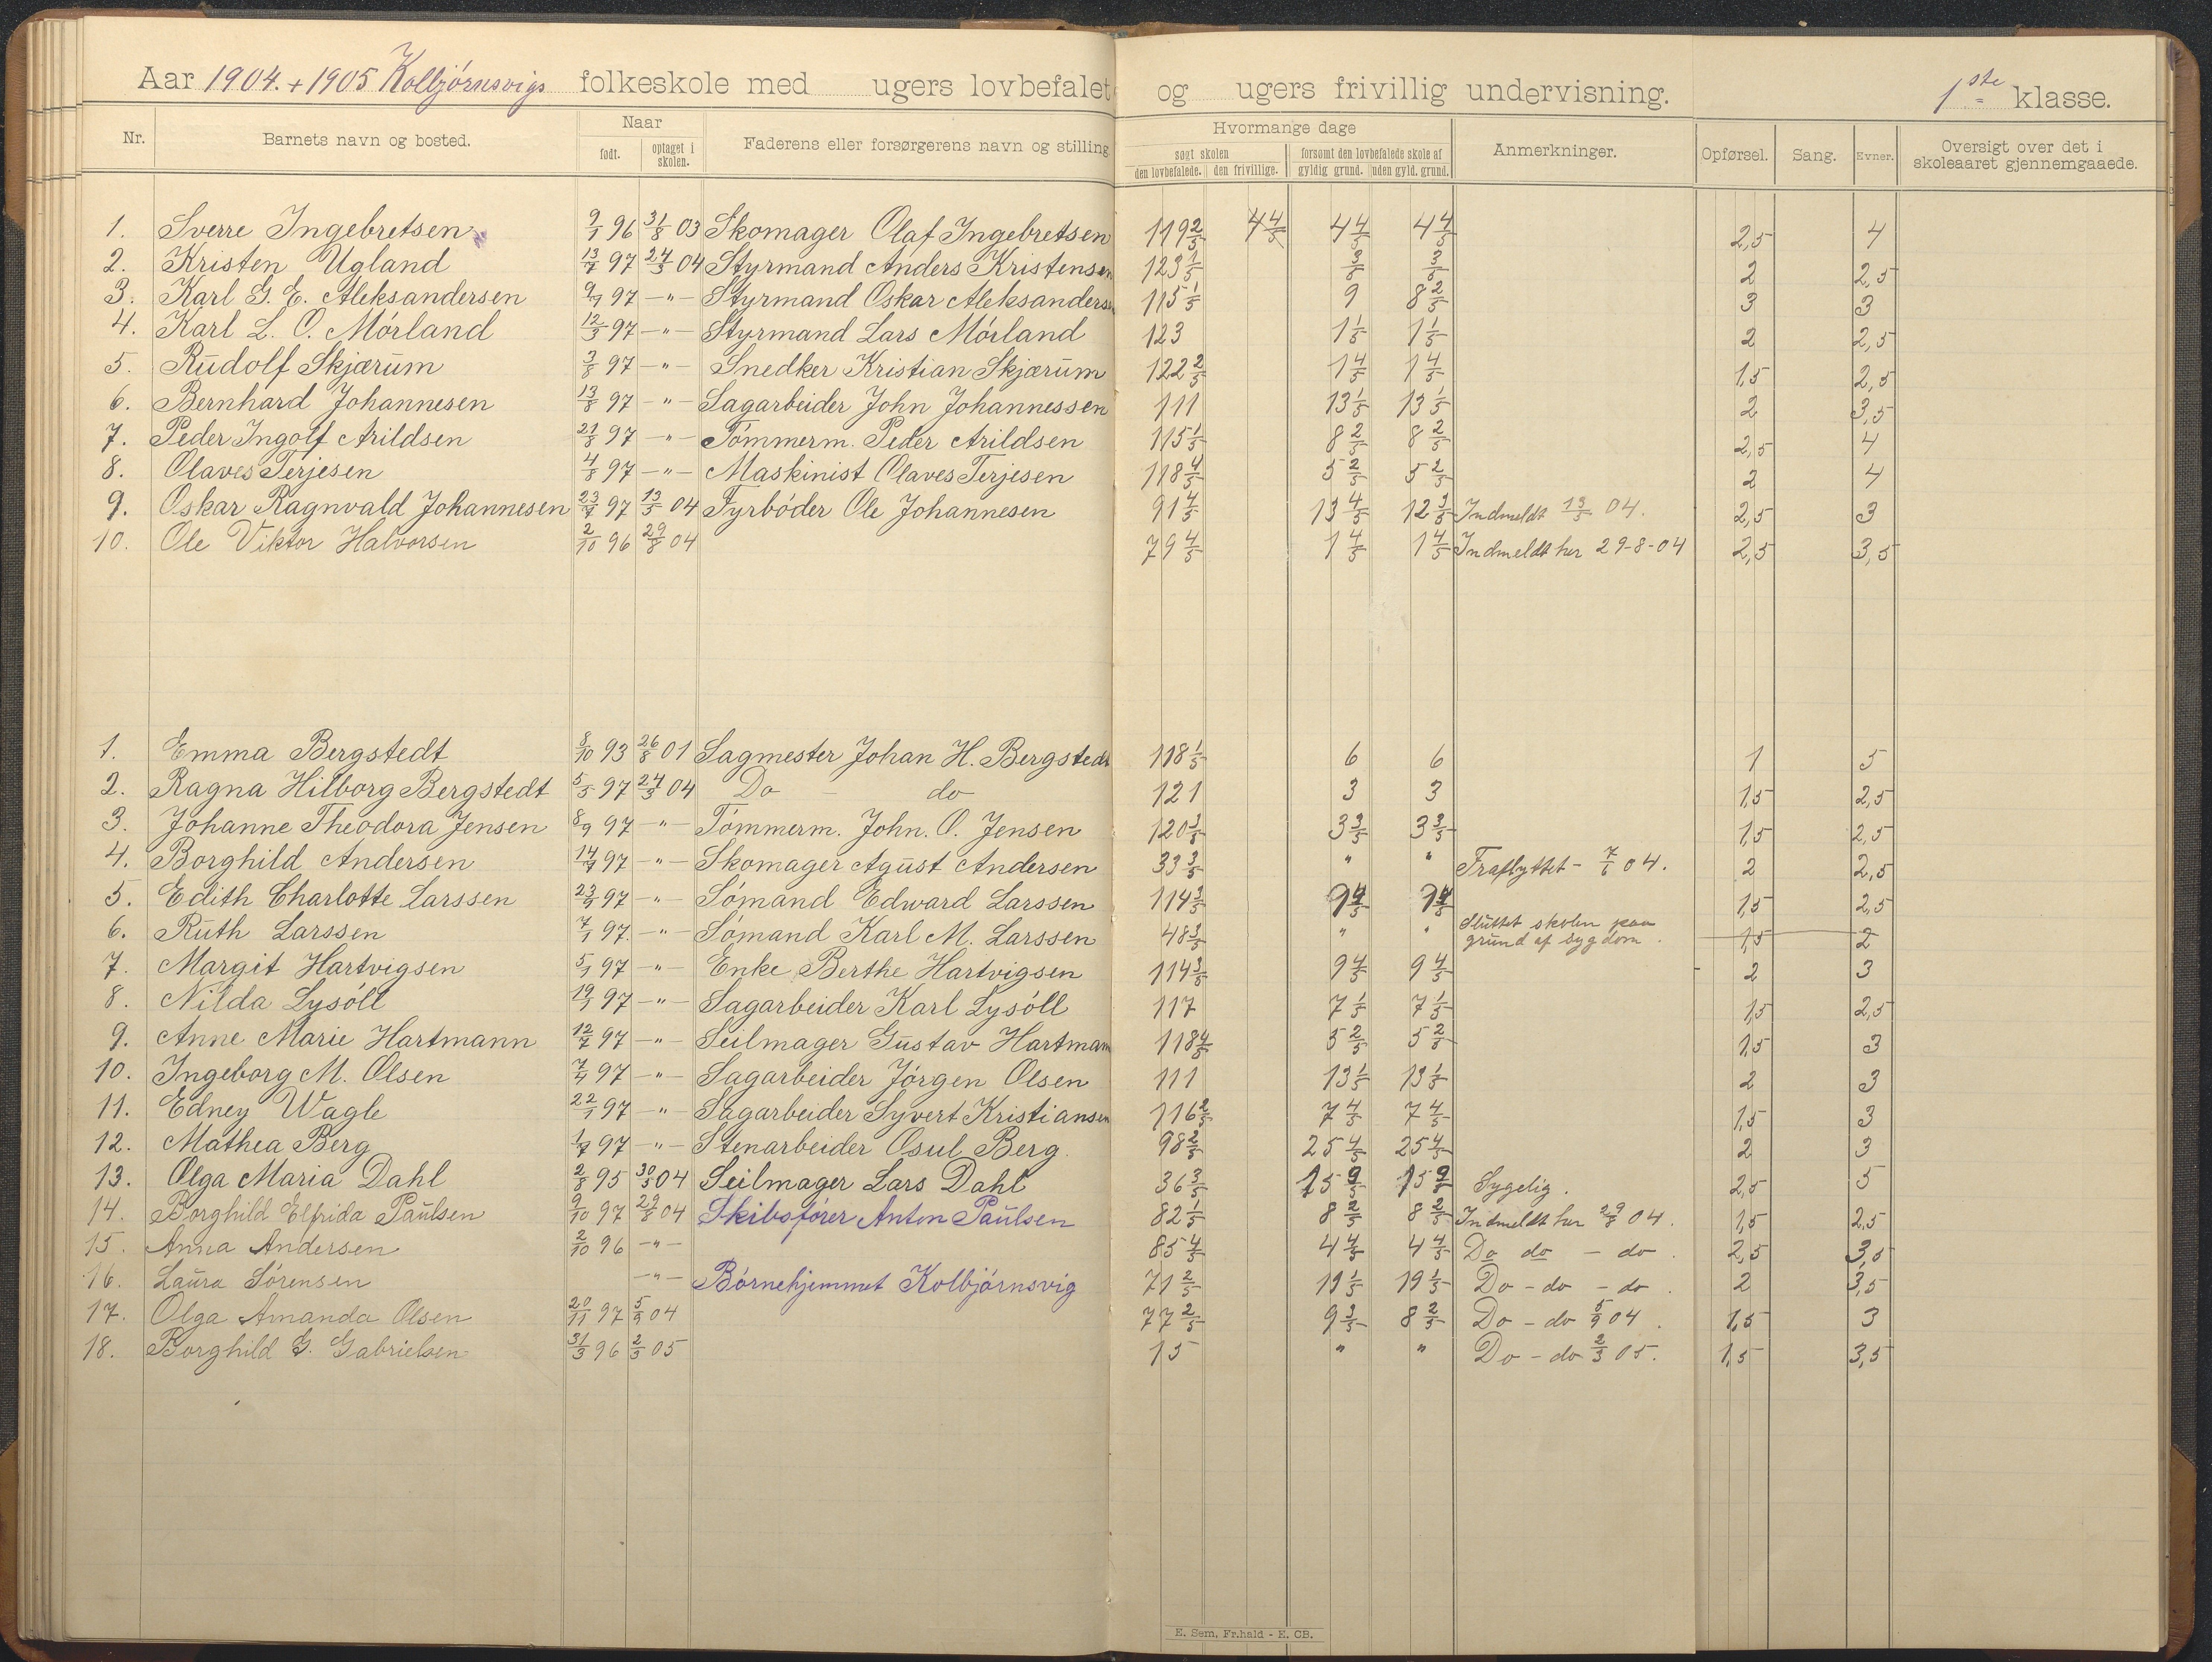 Aar 1904.+1905 Kolbjórnsvigs folkeskole med ugers lovbefalet og ugers frivillig undervisning. 1ste klasse.
Nr. Barnets navn og bosted. Naar født. optaget i skolen. Faderens eller forsørgerens navn og stilling Hvormange dage søgt skolen den lovbefalede. den frivillige. forsømt den lovbefalede skole af gyldig grund. uden gyld. grund. Anmerkninger. Opførsel. Sang. Evner. Oversigt over det i skoleaaret gjennemgaaede.
1. Sverre Ingebretsen 9/1 96 31/8 03 Skomager Olaf Ingebretsen 119 2/5 4 4/5 4 4/5 4 4/5 2,5 4
2. Kristen Ugland 13/7 97 24/5 04 Styrmand Anders Kristensen 123 1/5 3/5 3/5 2 2,5
3. Karl G. E. Aleksandersen 9/9 97 -"- Styrmand Oskar Aleksandersen 115 1/5 9 8 2/5 3 3
4. Karl L. O. Mórland 12/3 97 -"- Styrmand Lars Mórland 123 1 1/5 1 1/5 2 2,5
5. Rudolf Skjærum 3/8 97 -"- Snedker Kristian Skjærum 122 2/5 1 4/5 1 4/5 1,5 2,5
6. Bernhard Johannesen 13/8 97 -"- Sagarbeider John Johannessen 111 13 1/5 13 1/5 2 3,5
7. Peder Ingolf Arildsen 21/8 97 -"- Tómmerm. Peder Arildsen 115 1/5 8 2/5 8 2/5 2,5 4
8. Olaves Terjesen 4/8 97 -"- Maskinist Olaves Terjesen 118 4/5 5 2/5 5 2/5 2 4
9. Oskar Ragnvald Johannesen 23/7 97 13/5 04 Fyrbóder Ole Johannesen 91 4/5 13 4/5 12 3/5 Indmeldt 13/5 04. 2,5 3
10. Ole Viktor Halvorsen 2/10 96 29/8 04 79 4/5 1 4/5 1 4/5 Indmeldt her 29-8-04 2,5 3,5
1. Emma Bergstedt 8/10 93 26/8 01 Sagmester Johan H. Bergstedt 118 1/5 6 6 1 5
2. Ragna Hilborg Bergstedt 5/5 97 24/5 04 Do - do 121 3 3 1,5 2,5
3. Johanne Theodora Jensen 8/9 97 -"- Tómmerm. John. O. Jensen 120 3/5 3 3/5 3 3/5 1,5 2,5
4. Borghild Andersen 14/7 97 -"- Skomager Agust Andersen 33 3/5 " " Fraflyttet - 7/6 04. 2 2,5
5. Edith Charlotte Larssen 23/9 97 -"- Sómand Edward Larssen 114 3/5 9 4/5 9 4/5 1,5 2,5
6. Ruth Larssen 7/1 97. -"- Sómand Karl M. Larssen 48 3/5 " " Sluttet skolen paa grund af sygdom. 1,5 2
7. Margit Hartvigsen 5/1 97 -"- Enke Berthe Hartvigsen 114 3/5 9 4/5 9 4/5 2 3
8. Nilda Lysóll 19/1 97 -"- Sagarbeider Karl Lysóll 117 7 1/5 7 1/5 1,5 2,5
9. Anne Marie Hartmann 12/7 97 -"- Seilmager Gustav Hartmann 118 4/5 5 2/5 5 2/5 1,5 3
10. Ingeborg M. Olsen 7/4 97 -"- Sagarbeider Jórgen Olsen 111 13 1/5 13 1/5 2 3
11. Edney Wagle 22/1 97 -"- Sagarbeider Syvert Kristiansen 116 2/5 7 4/5 7 4/5 1,5 3
12. Mathea Berg 1/7 97 -"- Stenarbeider Osul Berg. 98 2/5 25 4/5 25 4/5 2 3
13. Olga Maria Dahl 2/8 95 30/5 04 Seilmager Lars Dahl 36 3/5 Sygelig. 2,5 5
14. Borghild Elfrida Paulsen 9/10 97 29/8 04 Skibsfórer Anton Paulsen 82 1/5 8 2/5 8 2/5 Indmeldt her 29/8 04. 1,5 2,5
15. Anna Andersen 2/10 96 -"- 85 4/5 4 4/5 4 4/5 Do do - do . 2,5 3,5
16. Laura Sórensen -"- Bórnehjemmet Kolbjórnsvig 71 2/5 19 1/5 19 1/5 Do - do - do . 2 3,5
17. Olga Amanda Olsen 20/11 97 5/9 04 77 2/5 9 3/5 8 2/5 Do - do 5/9 04. 1,5 3
18. Borghild G. Gabrielsen 31/3 96 2/3 05 15 " " Do - do 2/3 05. 1,5 3,5
E. Sem, Fr.hald - E. CB.